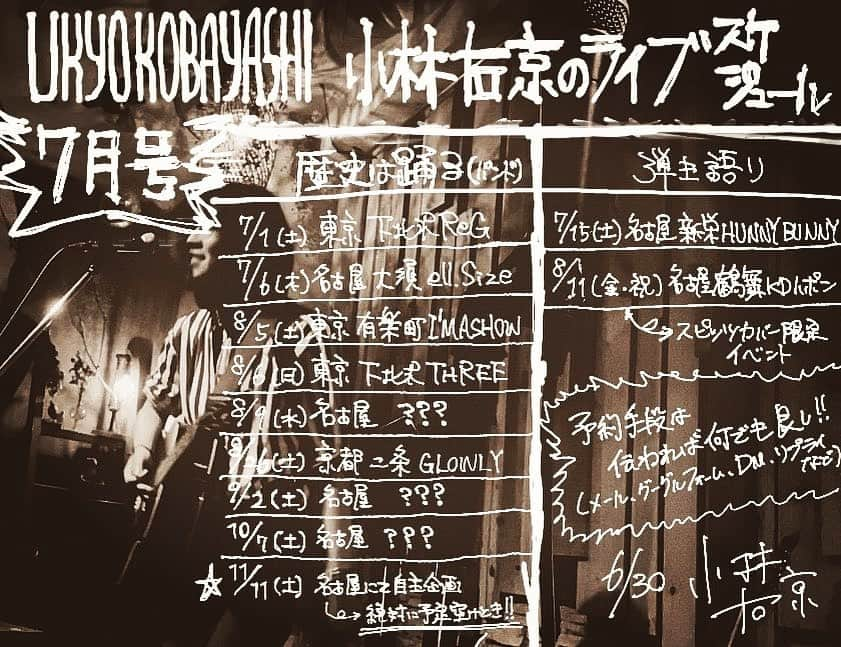 UKYO KOBAYASHI 小林右京のライブスケジュール
7月号
歴史は踊る(バンド)
7/1(土) 東京 下北沢ReG
7/6(木) 名古屋 大須 ell.Size
8/5(土) 東京 有楽町 I'MASHOW
8/6(日) 東京 下北沢 THREE
8/9(水) 名古屋 ???
8/26(土) 京都 二条 GLOWLY
9/2(土) 名古屋 ???
10/7(土) 名古屋 ???
☆ 11/11(土) 名古屋にて自主企画
→絶対に予定空けとき!!
弾き語り
7/15(土) 名古屋 新栄 HUNNY BUNNY
8/11(金・祝) 名古屋 鶴舞 KDハポン
→スピッツカバー限定
イベント
予約手段は
伝われば何でも良し!!
(メール、グーグルフォーム、DM、リプライ
など)
6/30 小林
右京